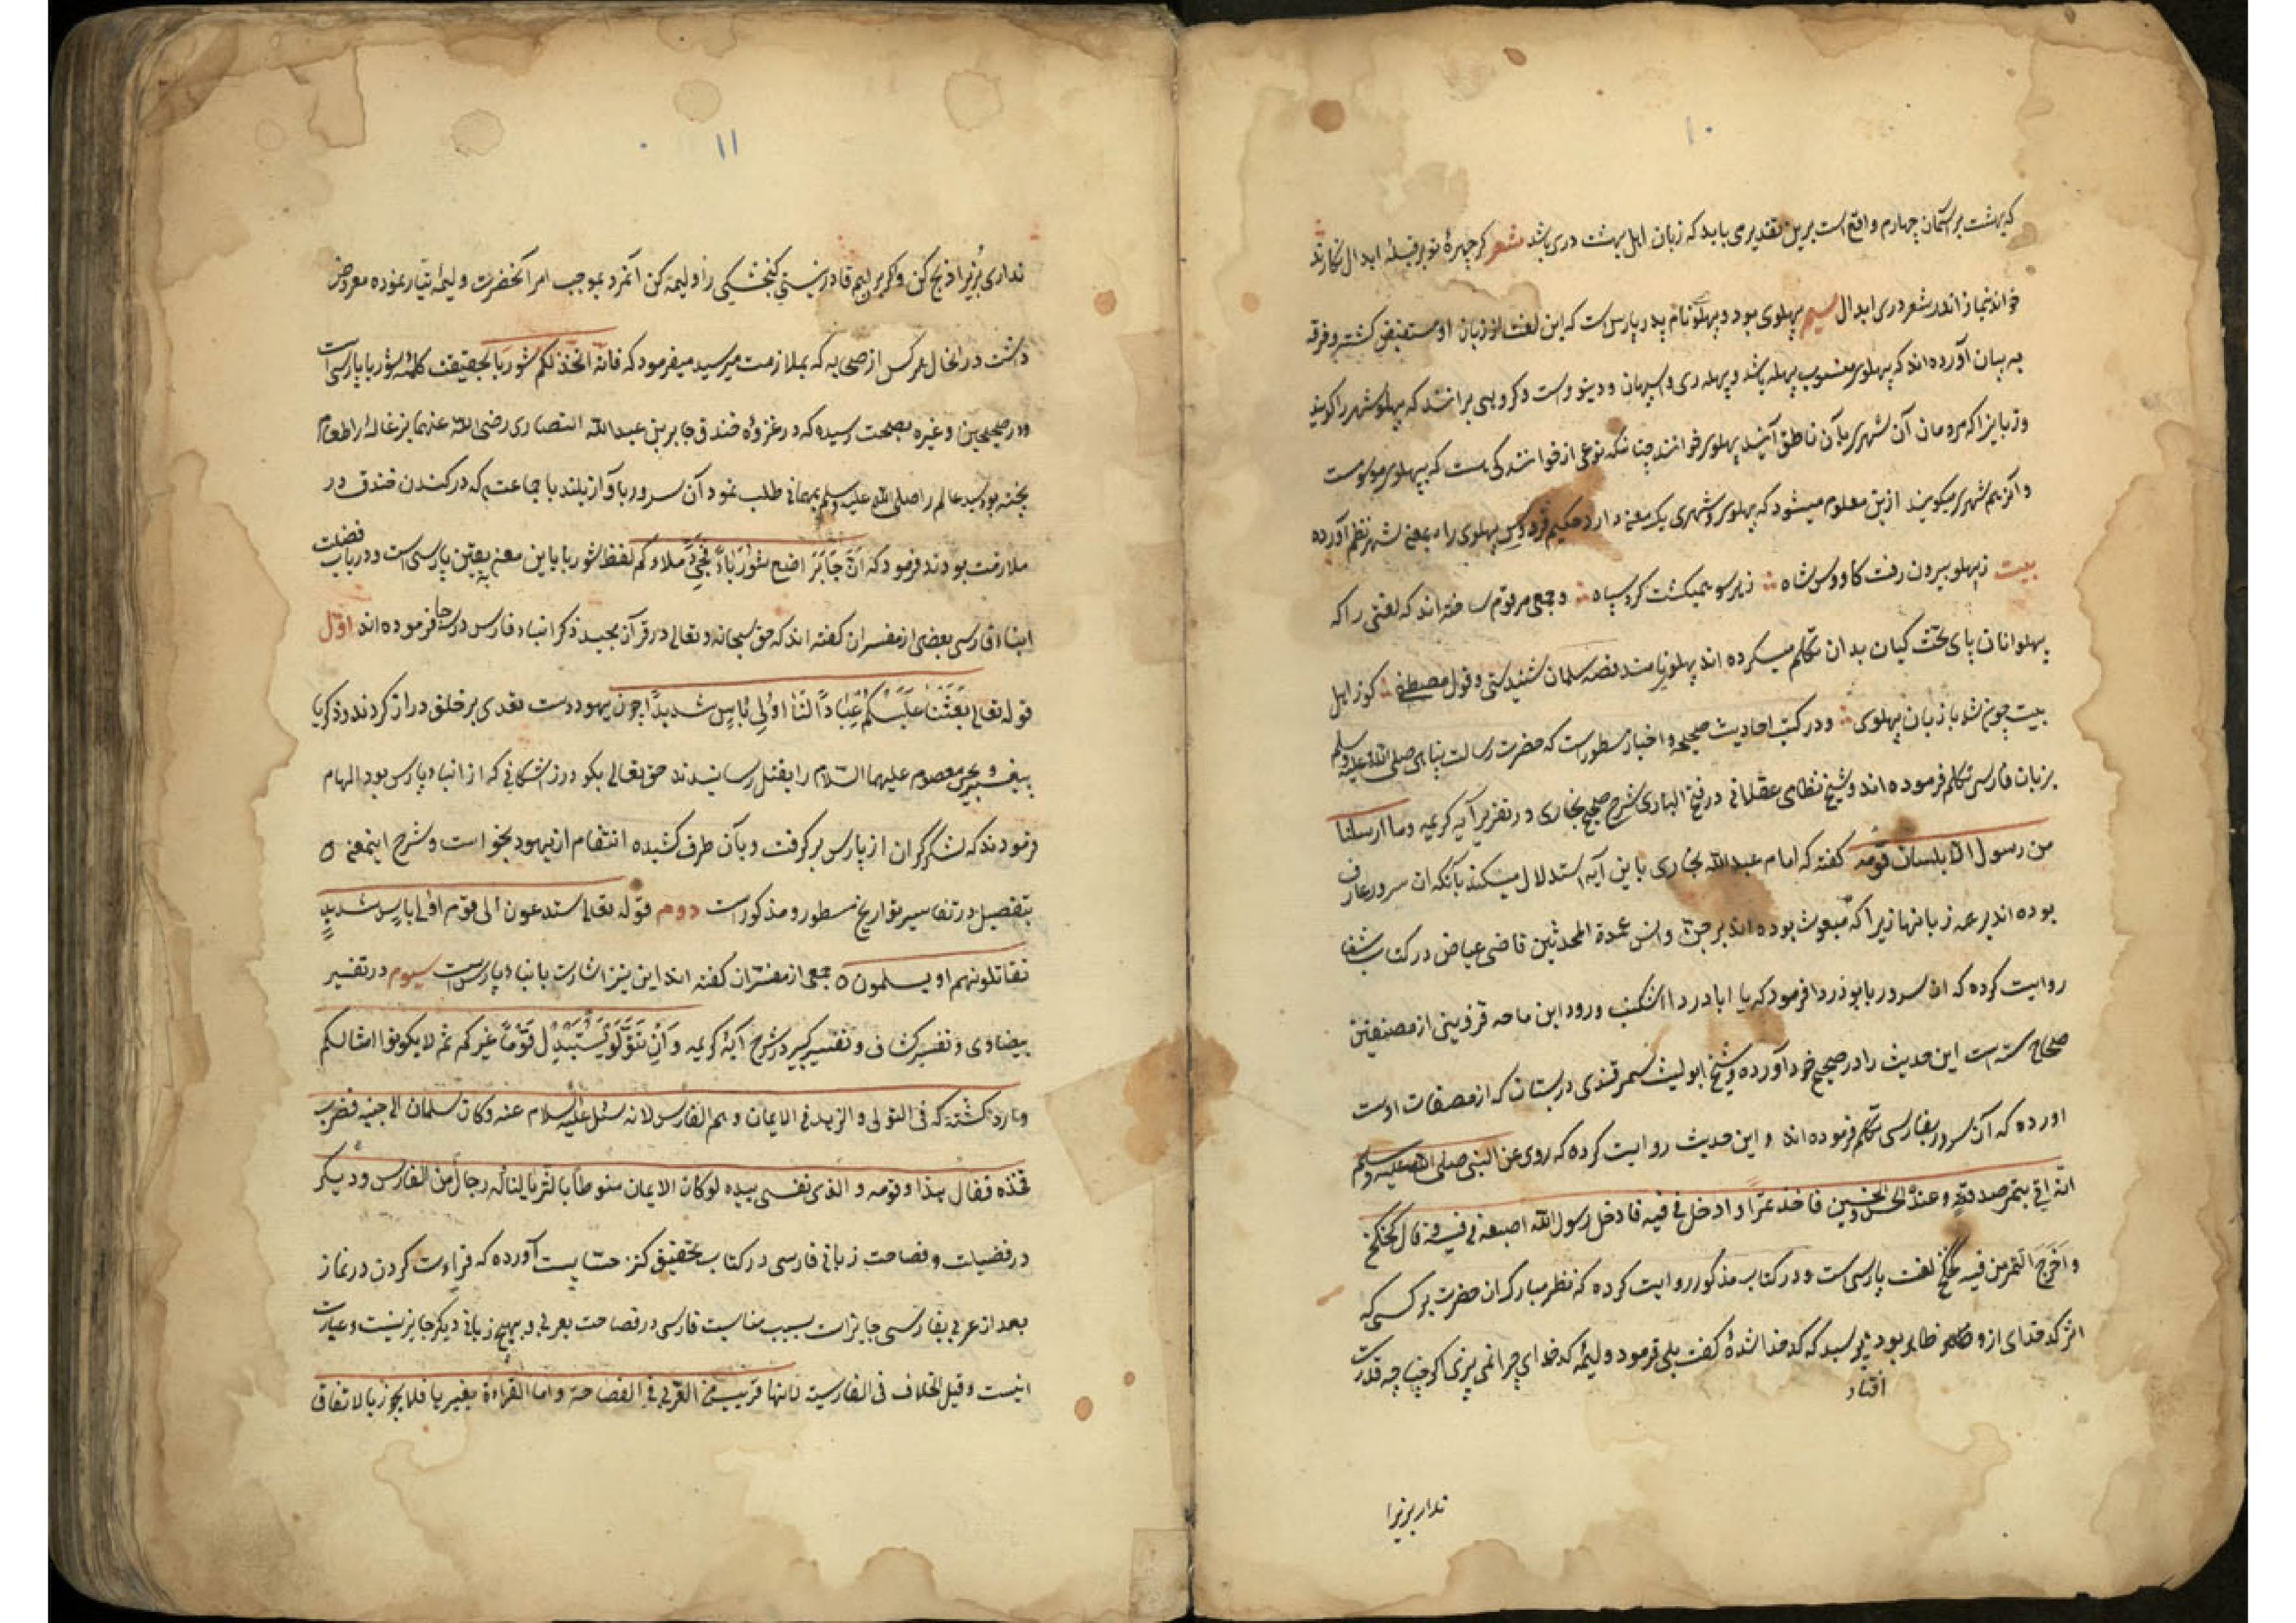 ۱۰
که بهشت بر آسمان چهارم واقع است برین تقدیر می باید که زبان اهل بهشت دری باشد شعر کر چهرهٔ تو بر قبلهٔ ابدال نکارند
خوانند نماز اندر شعر دری ابدال سیم پهلوی بود و پهلو نام پدر پارس است که این لغت از زبان او مستفیض کشته و فرقه
به بیان آورده اند که پهلوی منسوب پهله باشد و پهله ری و اسپهان و دینور است و کروهی برانند که پهلو شهر را کویند
و زبانیرا که مردمان آن شهر بآن ناطق آیند پهلوی خوانند چنانکه نوعی از خوانندکی است که بپهلوی موسوم است
و آنرا هم شهری میکویند ازین معلوم میشود که پهلوی و شهری یک معنی دارد حکیم فردوسی پهلوی را بمعنی شهر نظم آورده
بیت ز پهلو برون رفت کاووس شاه ز هر سو همیکشت کرد سپاه و جمعی مرقوم ساخته اند که لغتی را که
پهلوانان پای تخت کیان بدان تکلم میکرده اند پهلوی نامند قصه سلمان شنیدستی و قول مصطفی کوز اهل
بیت چون شد با زبان پهلوی و در کتب احادیث صحیحه و اخبار مسطور است که حضرت رسالت پناهی صلی الله علیه وسلم
بزبان فارسی تکلم فرموده اند و شیخ نظامی عقلانی در فتح الباری شرح صحیح بخاری در تفسیر آیه کریمه وما ارسلنا
من رسول الا بلسان قومه کفته که امام عبدالله بخاری باین آیه استدلال میکند بآنکه ان سرور عارف
بوده اند بر همه زبانها زیرا که مبعوث بوده اند بر جن و انس عمدة المحدثین قاضی عیاض در کتاب شفا
روایت کرده که ان سرور بابوذردا فرمود که یا ابادردا اشکنب ورود ابن ماجه قزوینی از مصنفین
صحاح سته است این حدیث را در صحیح خود آورده و شیخ ابو لیث سمرقندی در بستان که از مصنفات اوست
اورده که آن سرور بفارسی تکلم فرموده اند و این حدیث روایت کرده که روی عن النبی صلی الله علیه وسلم
انه اتی بتمر صدقة وعنده الحسن والحسین فاخذ تمرا و ادخل فی فیه فادخل رسول الله اصبعه فی فیه و قال کخ کخ
و اخرج التمر من فیه کخ کخ لغت پارسی است و در کتاب مذکور روایت کرده که نظر مبارک ان حضرت بر کسی که
اثر کدخدای ازو ظاهر بود پرسید که کدخدا شدهٔ کفت بلی فرمود ولیمه کدخدای چرا نمی پزی اکر چنانچه قدرت
افتاد
ندار بزیرا
۱۱
نداری بزیرا ذبح کن و اکر برانهم قادر نیستی کنجشکی را ولیمه کن آنمرد بموجب امر آنحضرت ولیمه تیار نموده معروض
داشت در انحال هر کس از صحابه که بملازمت میرسید میفرمود که فانه اتخذ لکم شوربا بحقیقت کلمه شوربا پارسی است
و در صحیحین و غیره بصحت رسیده که در غزوه خندق جابر بن عبدالله انصاری رضی الله عنهما بزغاله را طعام
پخته بود سید عالم را صلی الله علیه وسلم بمهمانی طلب نمود آن سرور باواز بلند با جماعتی که در کندن خندق در
ملازمت بودند فرمود که ان جابر اضع شورباء فحی هلا وکم لفظ شوربا باین معنی بیقین پارسی است و در باب فضیلت
ابناء فارسی بعضی از مفسران کفته اند که حق سبحانه و تعالی در قرآن مجید ذکر ابناء فارس در سه جا فرموده اند اول
قوله تعالی بعثنا علیکم عبادا لنا اولی باس شدید چون یهود دست تعدی بر خلق دراز کردند و ذکریا
پیغمبر و یحیی معصوم علیهما السلام را بقتل رسانیدند حق تعالی بکودرز اشکانی که از ابناء پارس بود الهام
فرمودند که لشکر کران از پارس بر کرفت و بآن طرف کشیده انتقام از یهود بخواست و شرح اینمعنی
بتفصیل در تفاسیر و تواریخ مسطور و مذکور است دوم قوله تعالی ستدعون الی قوم اولی باس شدید
تقاتلونهم او یسلمون جمعی از مفسران کفته اند این نیز اشارت بابناء پارس است سیوم در تفسیر
بیضاوی و تفسیر کشاف و تفسیر کبیر در شرح آیه کریمه و ان تتولوا یستبدل قوما غیرکم ثم لا یکونوا امثالکم
وارد کشته که فی التولی و الزهد فی الایمان و هم الفارس لانه سئل علیه السلام عنه و کان سلمان الی جنبه فضرب
فخذه فقال هذا و قومه و الذی نفسی بیده لو کان الایمان منوطا بالثریا لیناله رجال من الفارس و دیکر
در فضیلت و فصاحت زبانی فارسی در کتاب تحقیق کنز حسابست آورده که قراءت کردن در نماز
بعد از عربی بفارسی جایز است بسبب مناسبت فارسی در فصاحت بعربی و بهیچ زبانی دیکر جایز نیست و عبارت
اینست وقیل الخلاف فی الفارسیة لانها قریبة من العربی فی الفصاحة و اما القراءة بغیرها فلا یجوز بالاتفاق